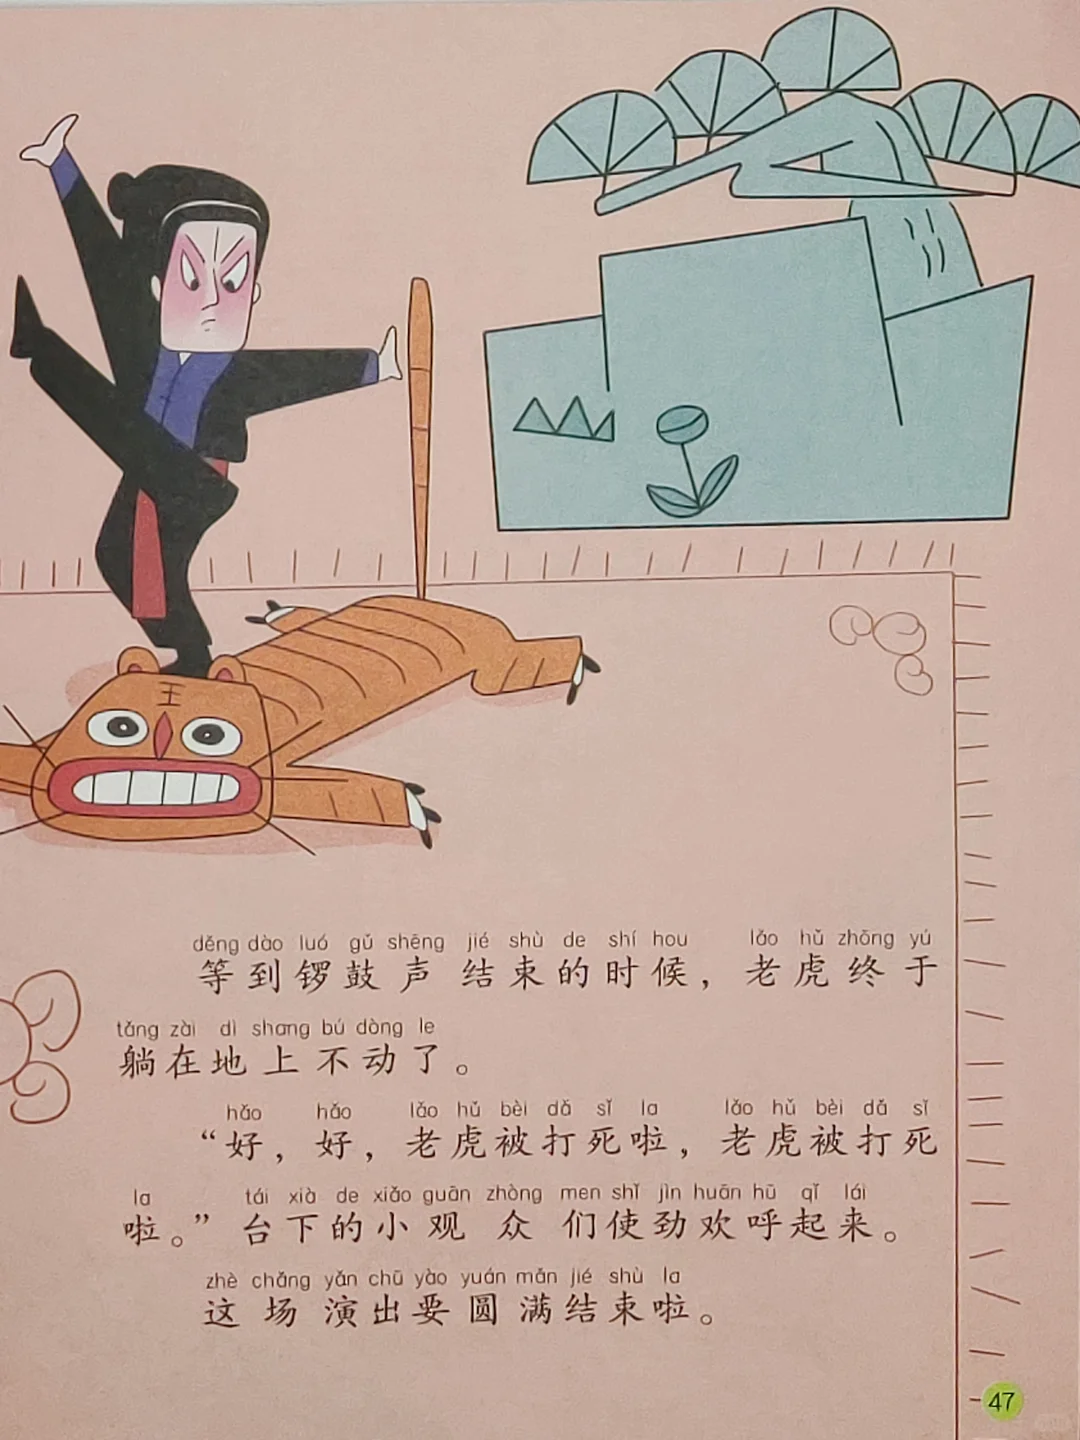 王
děng dào luó gǔ shēng jié shù de shí hou lǎo hǔ zhōng yú
等到锣鼓声结束的时候，老虎终于
tǎng zài dì shang bú dòng le
躺在地上不动了。
hǎo hǎo lǎo hǔ bèi dǎ sǐ la lǎo hǔ bèi dǎ sǐ
“好，好，老虎被打死啦，老虎被打死
la tái xià de xiǎo guān zhòng men shǐ jìn huān hū qǐ lái
啦。”台下的小观众们使劲欢呼起来。
zhè chǎng yǎn chū yào yuán mǎn jié shù la
这场演出要圆满结束啦。
47